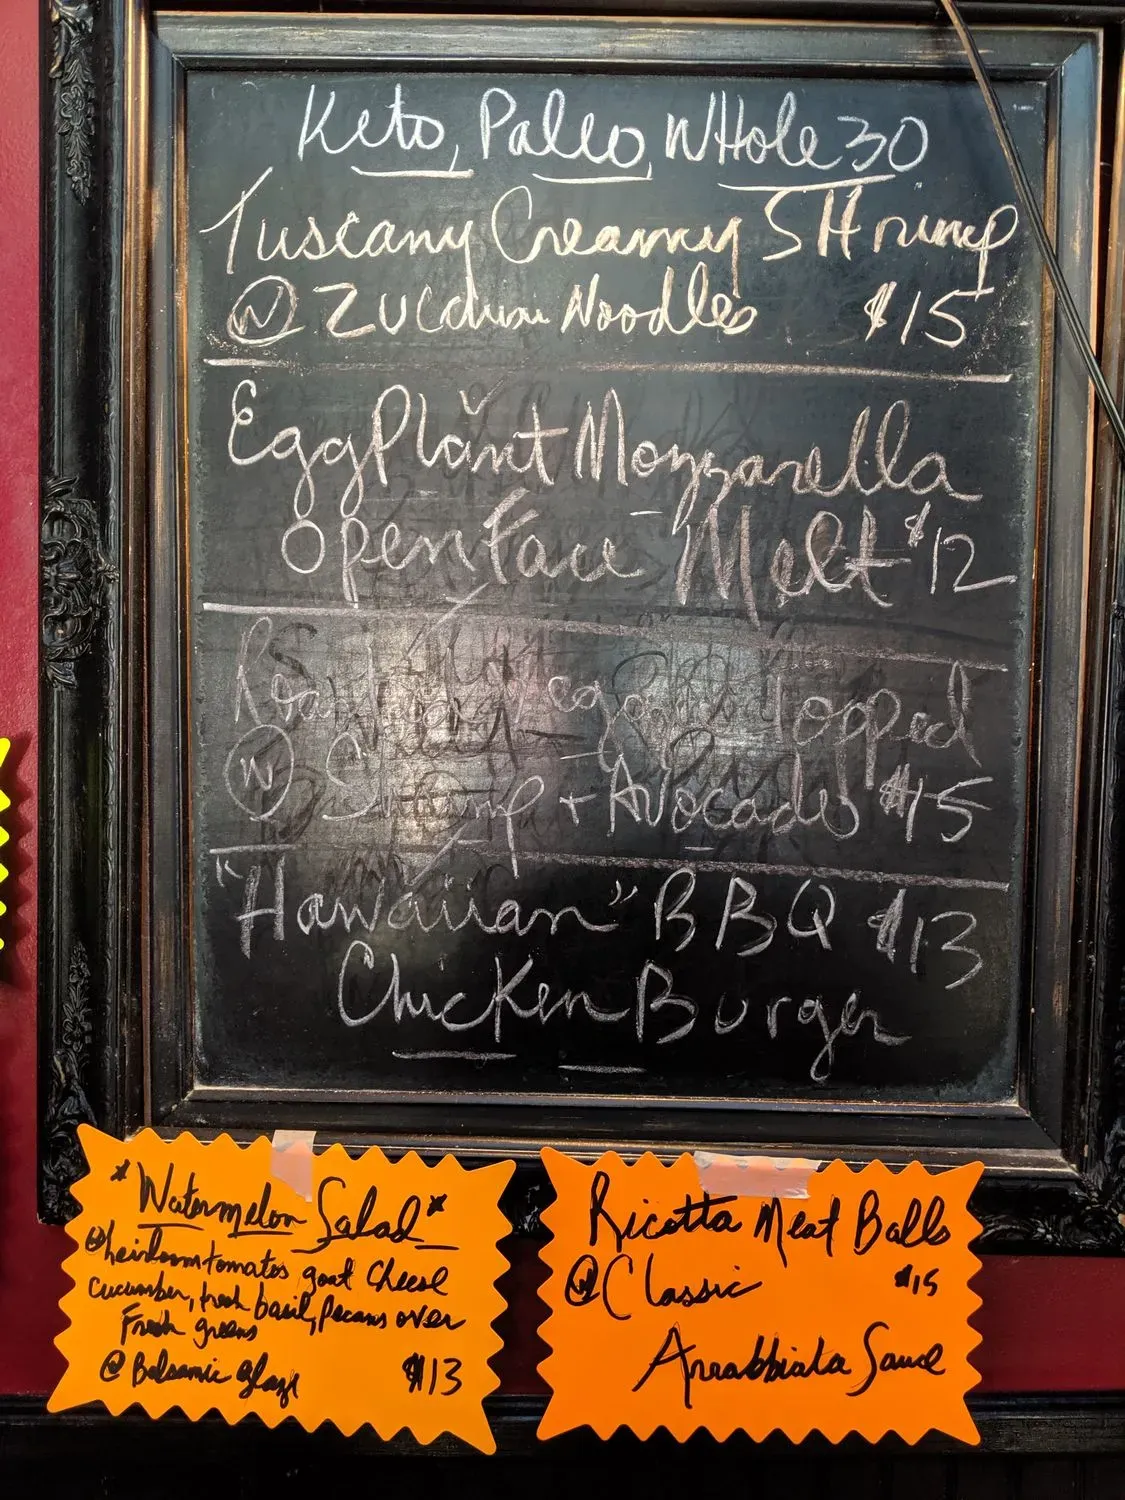 Keto, Paleo, WHole 30
Tuscany Creamy SHrimp
W Zucchini Noodles $15
EggPlant Mozzarella
OpenFace Melt $12
topped
W SHrimp + Avocado $15
"Hawaiian" BBQ $13
ChicKen Burger
*Watermelon Salad*
W heirloom tomatoes goat Cheese
cucumber, fresh basil, Pecans over
Fresh greens
@ Balsamic glaze $13
Ricotta Meat Balls
W Classic $15
Arrabbiata Sauce